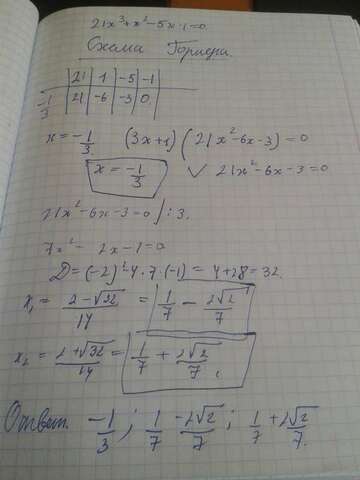 21x³+x²-5x-1=0.
Схема Горнера.
| 21 | 1 | -5 | -1
-1/3 | 21 | -6 | -3 | 0
x=-1/3 (3x+1)(21x²-6x-3)=0
x=-1/3 ∨ 21x²-6x-3=0
21x²-6x-3=0/:3.
7x²-2x-1=0
D=(-2)²-4·7·(-1)=4+28=32.
x₁= (2-√32)/14 = 1/7 - 2√2/7
x₂= (2+√32)/14 = 1/7 + 2√2/7.
Ответ. -1/3; 1/7 - 2√2/7; 1/7 + 2√2/7.